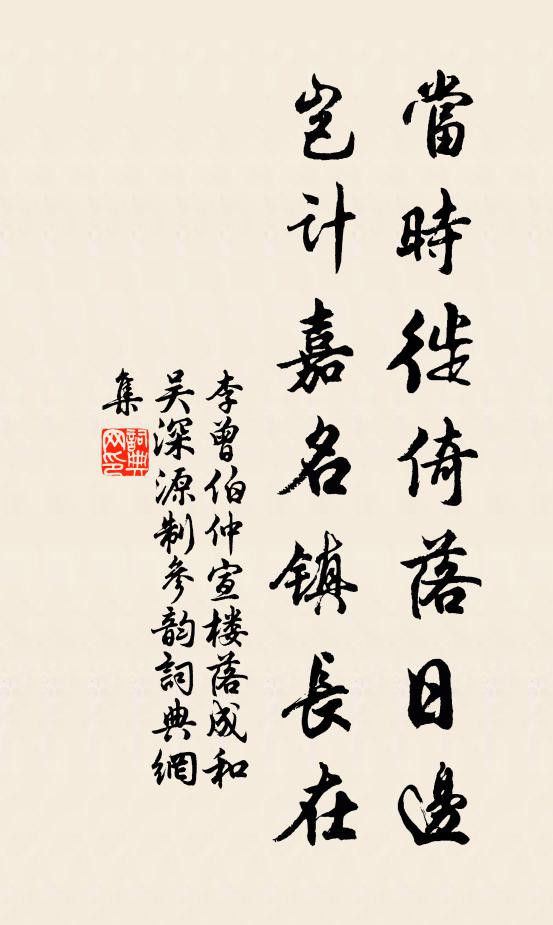 當時徙倚落日邊
岂计嘉名镇長在
李曾伯仲宣楼落成和
吴深源制参韵詞典網
集
詞典
网印